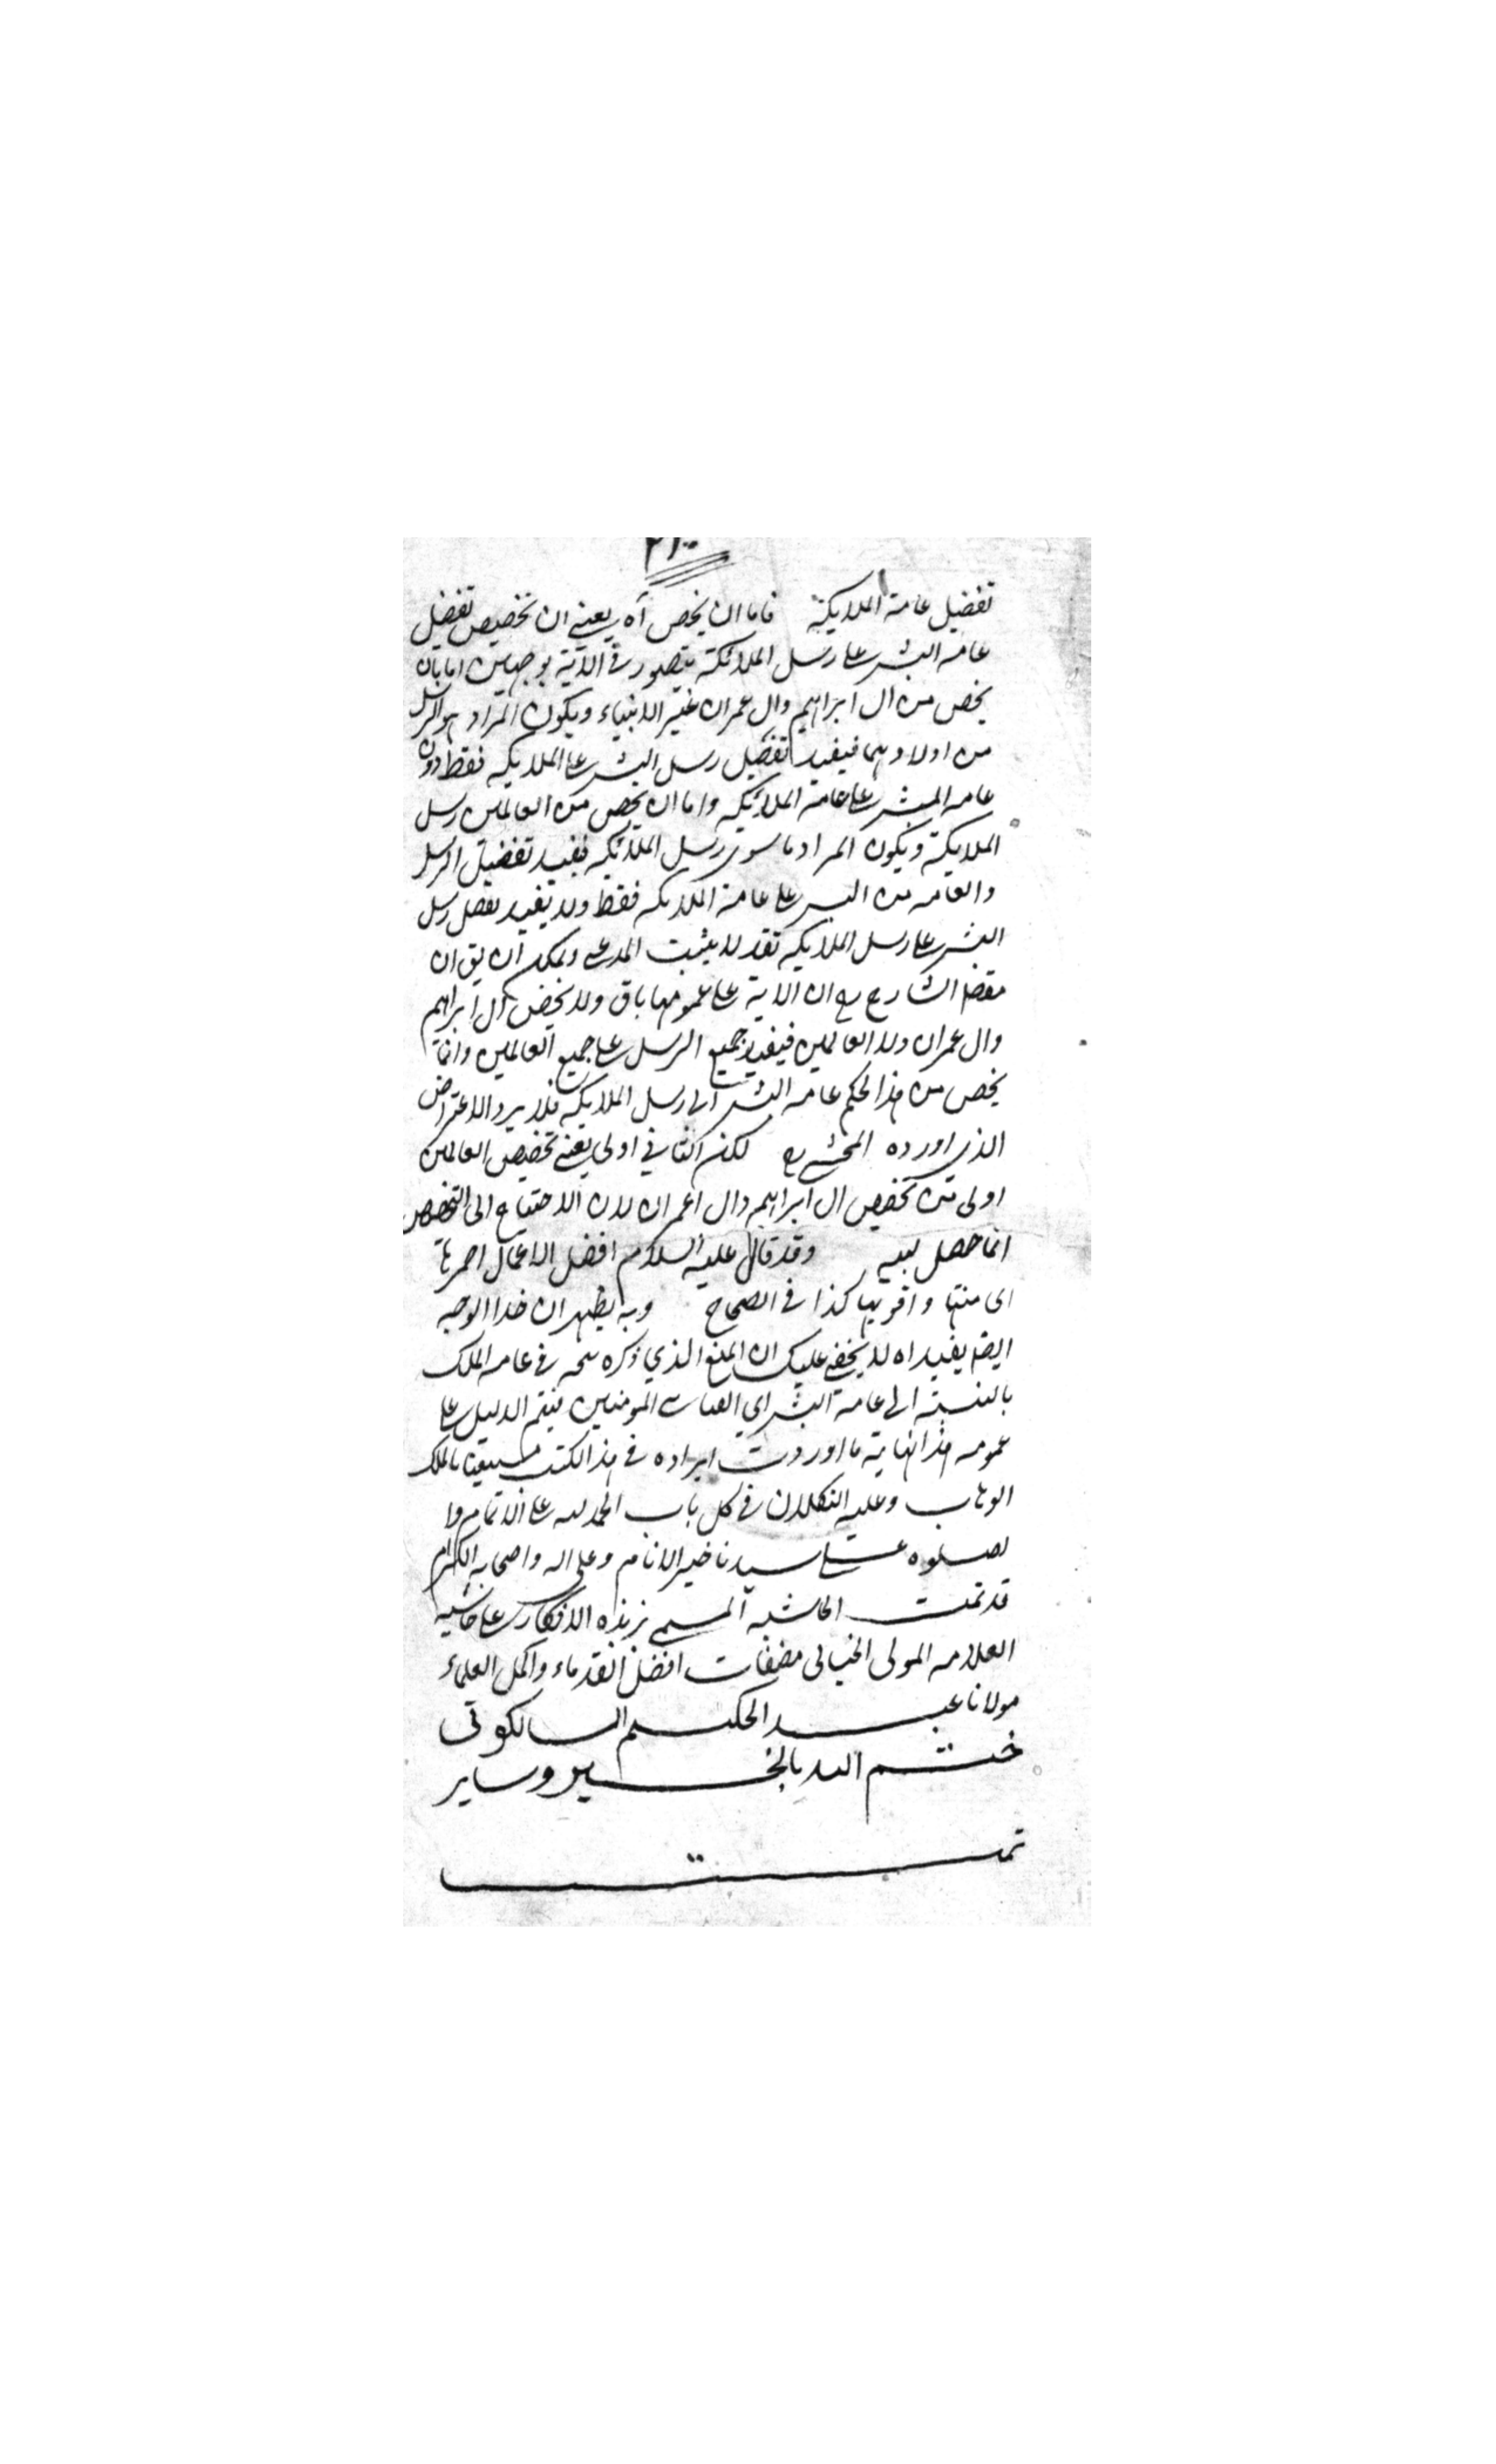 تفضيل عامة الملايكة فاما ان يخص آه يعني ان تخصيص تفضل
عامة البشر على رسل الملائكة يتصور في الآية بوجهين اما بان
يخص من ال ابراهيم وال عمران غير الانبياء ويكون المراد هو الرسل
من اولادهما فيفيد تفضيل رسل البشر على الملايكه فقط دون
عامه البشر على عامة الملايكه واما ان يخص من العالمين رسل
الملايكة ويكون المراد ما سوى رسل الملائكه فيفيد تفضيل الرسل
والعامه من البشر على عامة الملايكه فقط ولا يفيد تفضل رسل
البشر على رسل الملايكه فقد لا يثبت المدعى ويمكن ان يق ان
الشارح ره ان الآية على عمومها باق ولا يخص ال ابراهيم
وال عمران ولا العالمين فيفيد جميع الرسل على جميع العالمين وانما
يخص من هذا الحكم عامه البشر الى رسل الملايكه فلا يرد الاعتراض
الذي اورده المحشي ره لكن الثاني اولى يعني تخصيص العالمين
اولى من تخصيص ال ابراهيم وال عمران لان الاحتياج الى التخصيص
انما حصل وقد قال عليه السلام افضل الاعمال احمزها
اى امتنها واقويها كذا في الصحاح وبه يظهر ان هذا الوجه
ايضا يفيد اه لا يخفى عليك ان المنع الذي ذكره في عامه الملك
بالنسبة الى عامة البشر اي المومنين فيتم الدليل على
عمومه هذا نهاية ما اوردت ايراده في هذا الكتب مستعينا بالملك
الوهاب وعليه التكلان في كل باب الحمد لله على الاتمام وا
لصلوه على سيدنا خير الانام وعلى اله واصحابه الكرام
قد تمت الحاشيه المسمى زبدة الافكار على حاشيه
العلامه المولى الخيالى مصنفات افضل القدماء واكمل العلماء
مولانا عبد الحكيم السالكوتى
ختم الله بالخير وساير
تمت